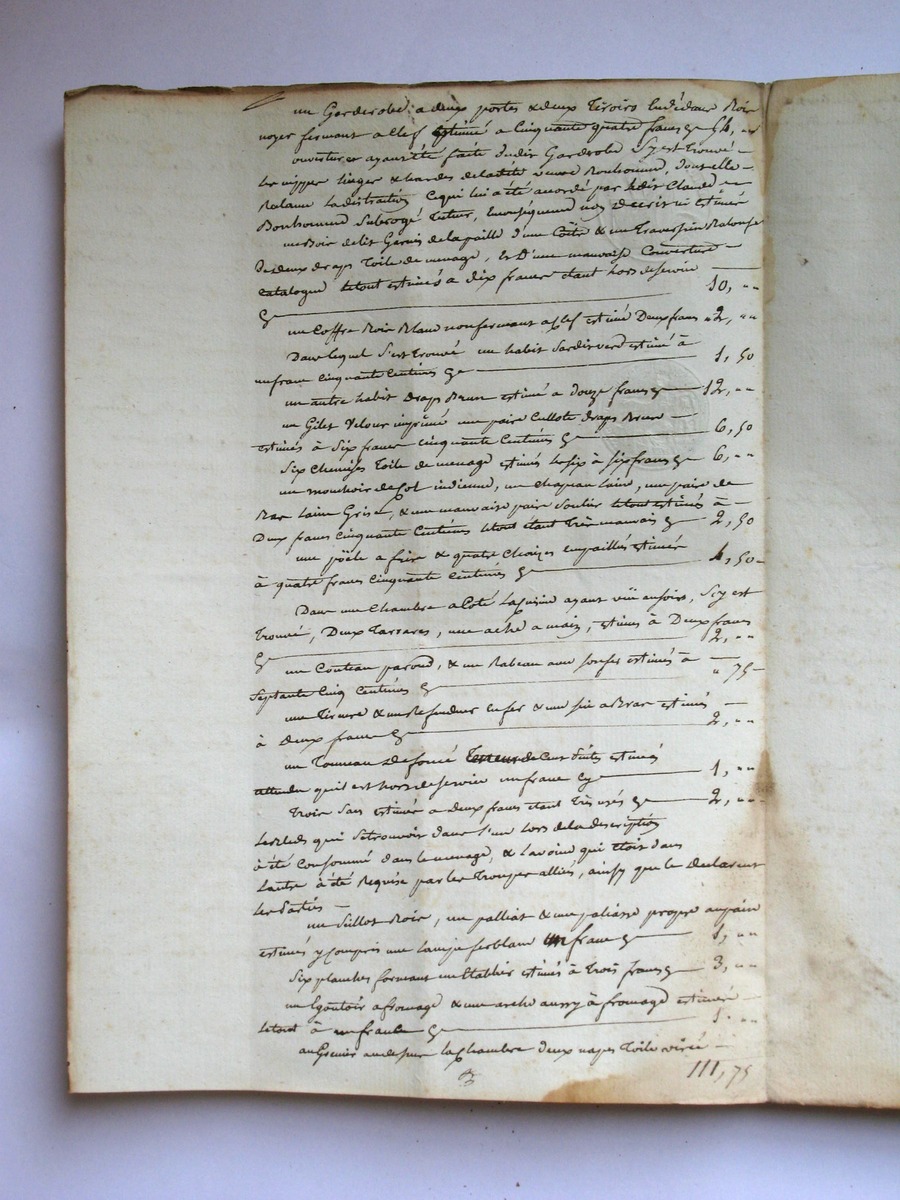 un Garderobe a deux portes & deux Tiroirs Bois
noyer fermant a clef estimé a Cinquante quatre francs 54, ""
ouverture ayant été faite dudit Garderobe s'y est trouvé
les nippes linges & hardes de ladite veuve Bonhomme, dont elle
Reclame la distraction Ce qui lui a été accordé par ledit Claude
Bonhomme Subrogé Tuteur, non Décrit ni estimé
un Bois de lit Garnis de la paille d'une Coite & un Traversin
de deux draps Toile de menage, et d'une mauvaise Couverture
catalogne le tout estimés à dix francs étant hors de service
10, ""
un Coffre Bois Blanc non fermant a Clef estimé Deux francs 2, ""
Dans lequel s'est trouvé un habit Sardis verd estimé à
un franc cinquante Centimes 1, 50
un autre habit draps Brun estimé a douze francs 12, ""
un Gilet Velour imprimé une paire Cullote draps Brun
estimés à Six francs cinquante Centimes 6, 50
Six Chemises Toile de menage estimés les six à six francs 6, ""
un mouchoir de Col indienne, un Chapeau laine, une paire de
Bas laine Grise, & une mauvaise paire Soulier le tout estimés à
Deux francs cinquante Centimes le tout étant Très mauvais 2, 50
une pöele a frire & quatre Chaizes empaillés estimés
à quatre francs Cinquante Centimes 4, 50
Dans une Chambre a Coté la Cuisine ayant vüe au soir, s'y est
Trouvé, Deux Tarrares, une ache a main, estimés à Deux francs
2, ""
un Couteau paroud, & un Rabeau aux estimés à
Septante Cinq Centimes " 75
une & un Refendux en fer & une sie a Bras estimés
à Deux francs 2, ""
un Tonneau Défoncé de Cent Pots estimés
attendu qu'il est hors de service un franc 1, ""
Trois Sacs estimés a Deux francs étant Très usés 2, ""
Les Bleds qui se trouvoit dans l'un lors de la description
à été Consommé dans le menage, & l'avoine qui étoit dans
l'autre à été Requise par les Troupes alliés, ainsy que le Déclarent
les Parties
un Sillot Bois, un palliat & une paliasse propre au pain
estimés y compris une lampe ferblanc un franc 1, ""
Six planches formant un Etablier estimés à Trois francs 3, ""
un Egoutoir a fromage & une arche aussy à fromage estimés
le tout à un franc 1. ""
au Grenier au dessus la Chambre deux napes Toile
111, 75